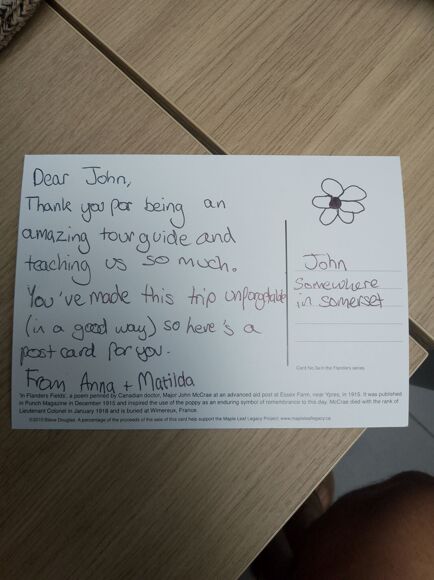 Dear John,
Thank you for being an
amazing tour guide and
teaching us so much.
You've made this trip unforgettable
(in a good way) so here's a
post card for you.
From Anna + Matilda
John
Somewhere
in somerset
Card No.3a in the Flanders series.
'In Flanders Fields', a poem penned by Canadian doctor, Major John McCrae at an advanced aid post at Essex Farm, near Ypres, in 1915. It was published
in Punch Magazine in December 1915 and inspired the use of the poppy as an enduring symbol of remembrance to this day. McCrae died with the rank of
Lieutenant Colonel in January 1918 and is buried at Wimereux, France.
©2010 Steve Douglas. A percentage of the proceeds of the sale of this card help support the Maple Leaf Legacy Project. www.mapleleaflegacy.ca